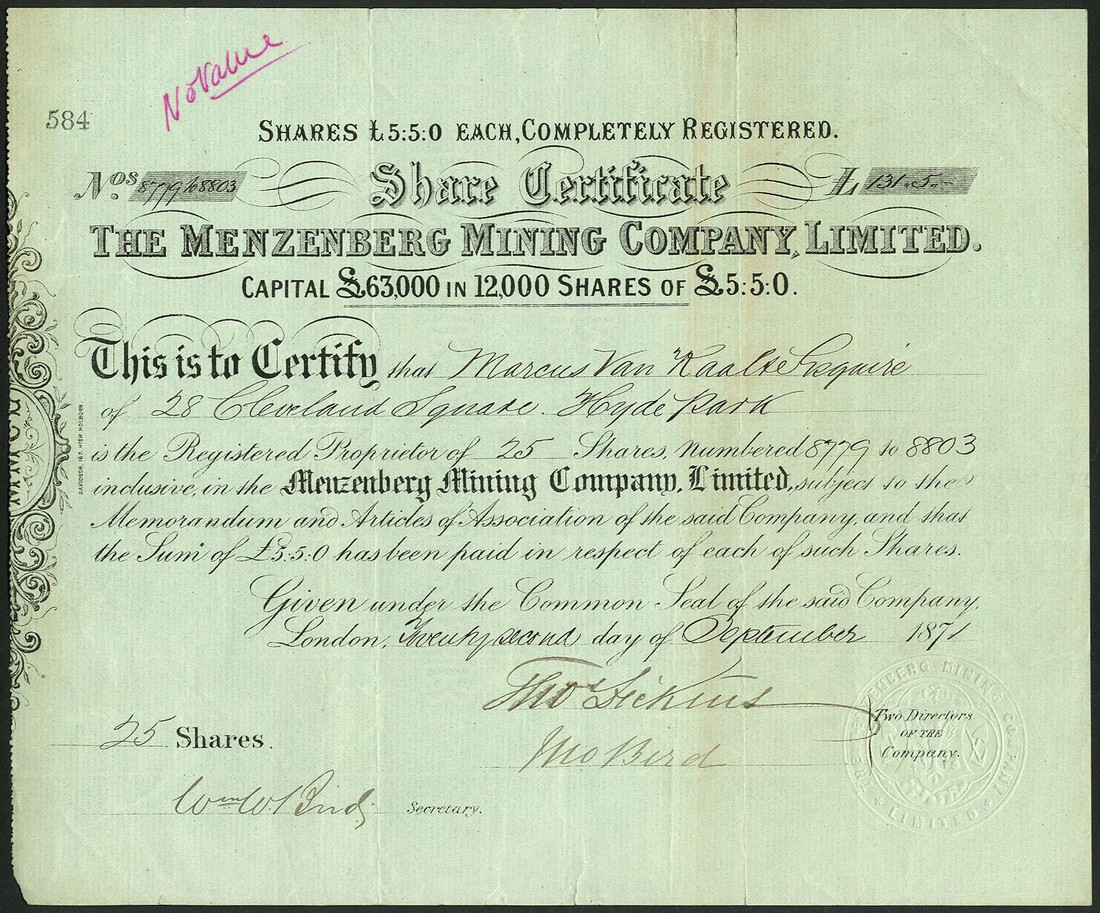 No Value
584
SHARES £5:5:0 EACH, COMPLETELY REGISTERED.
Nos. 8779 to 8803 Share Certificate £131.5.-
THE MENZENBERG MINING COMPANY, LIMITED.
CAPITAL £63,000 IN 12,000 SHARES OF £5:5:0.
This is to Certify that Marcus Van Raalte Esquire
of 28 Cleveland Square. Hyde Park
is the Registered Proprietor of 25 Shares, numbered 8779 to 8803
inclusive, in the Menzenberg Mining Company, Limited, subject to the
Memorandum and Articles of Association of the said Company, and that
the Sum of £5:5:0 has been paid in respect of each of such Shares.
Given under the Common Seal of the said Company,
London, Twenty second day of September 1871
Thos Dickins
Jno Bird
Two Directors
OF THE
Company.
25 Shares.
Wm W. Bird Secretary.
THE MENZENBERG MINING COMPANY
LIMITED